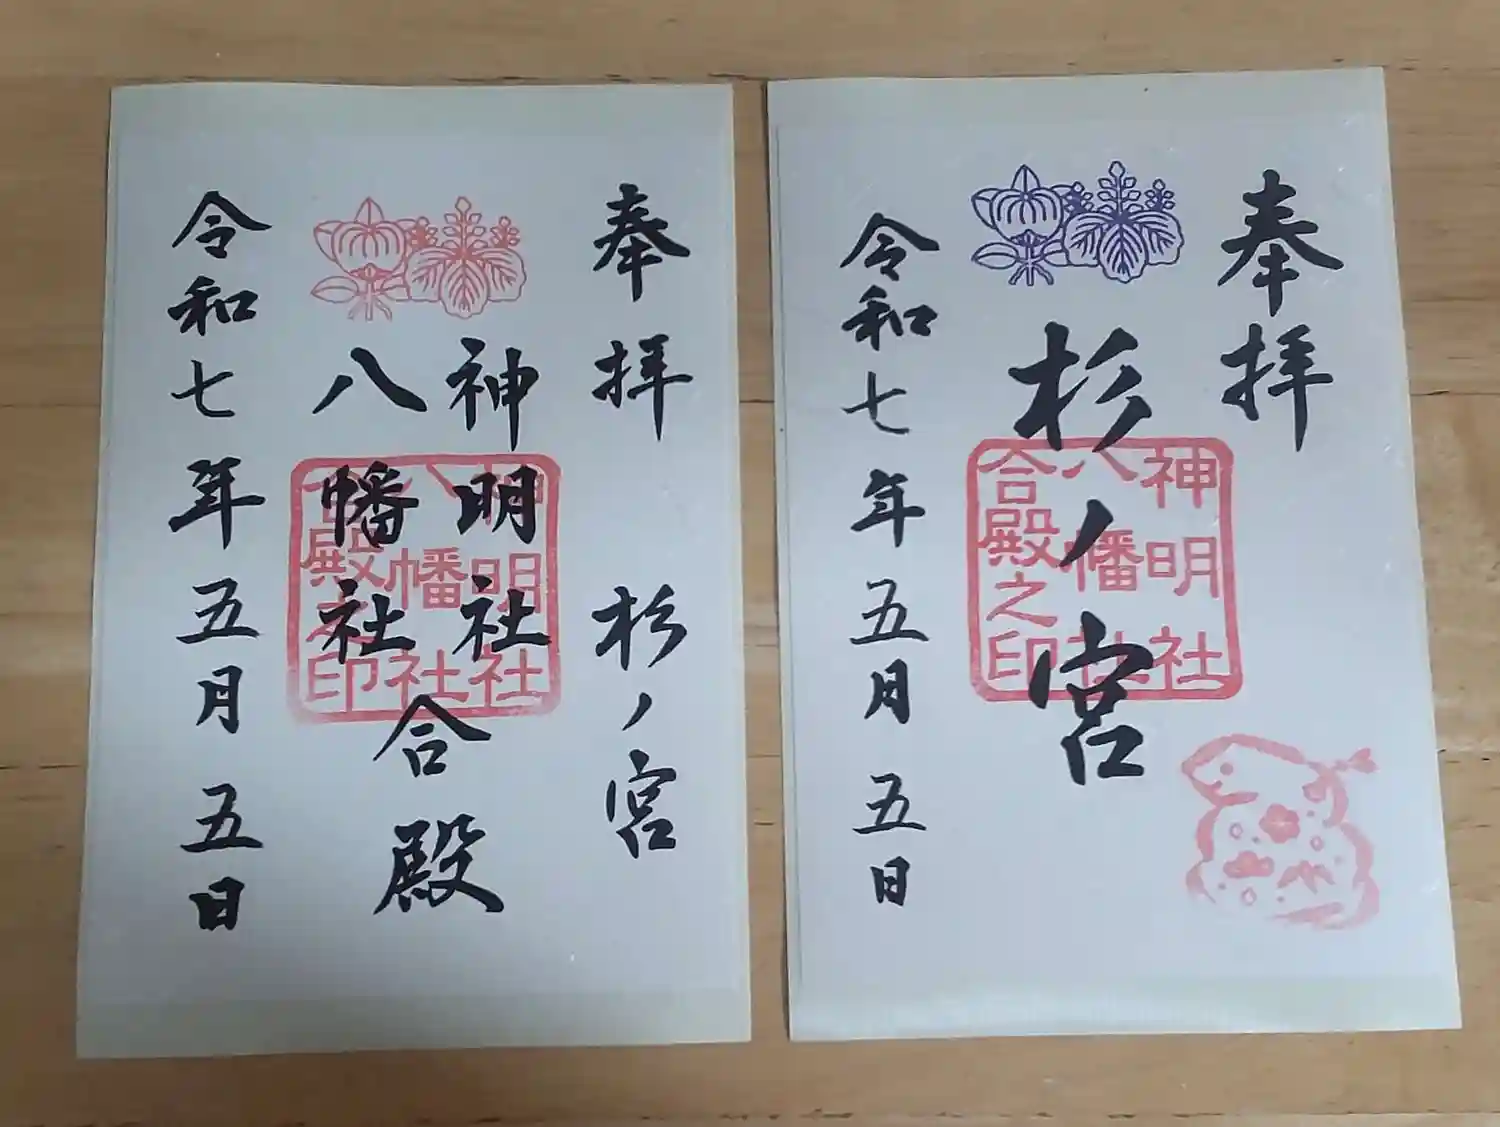 奉拝　杉ノ宮
神明社
八幡社
合殿
神明社
八幡社
合殿之印
令和七年五月五日
奉拝
杉ノ宮
神明社
八幡社
合殿之印
令和七年五月五日